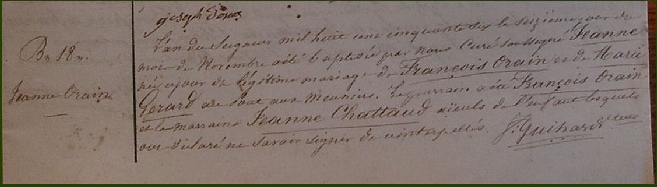 joseph
B. 18.
Jeanne Orain
L'an du Seigneur mil huit cent cinquante six le seizième jour de
mois de Novembre a été baptisée par nous Curé soussigné Jeanne
née ce jour de légitime mariage de François Orain et de Marie
Gerard aux Meuniers. Le parrain a été François Orain
et la marraine Jeanne Chattaud aïeuls de l'enfant lesquels
ont déclaré ne savoir signer de ce interpellés. J. Guihard